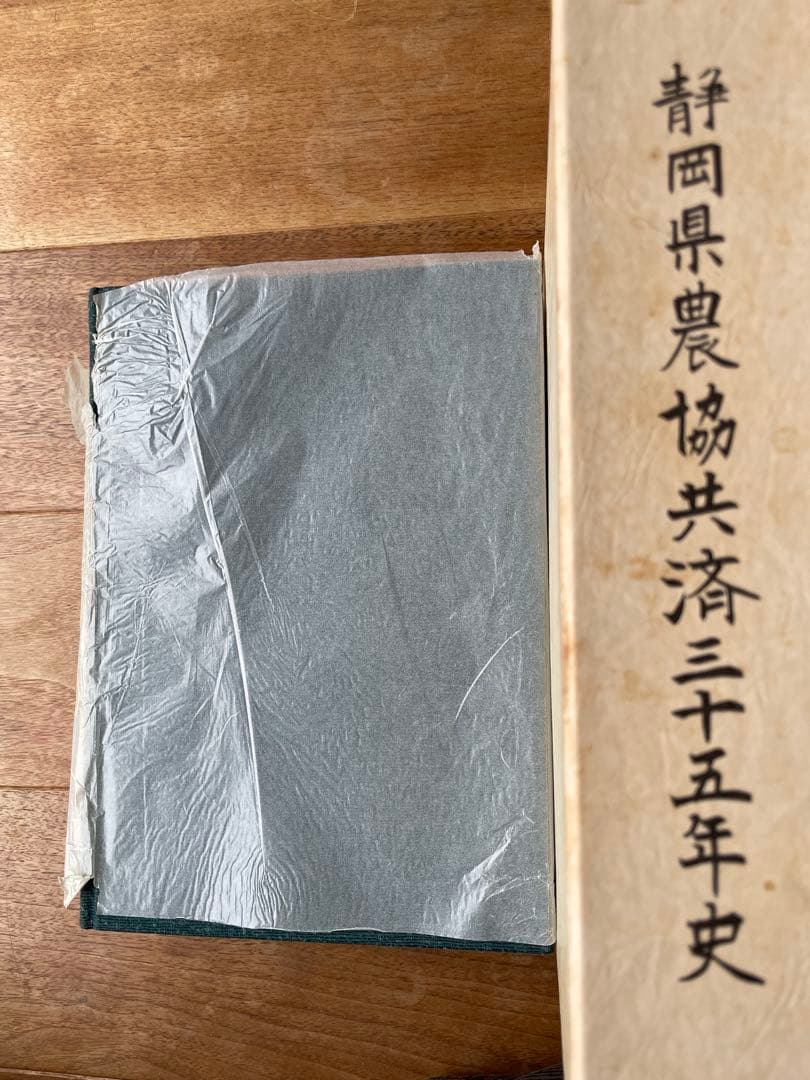 静岡県農協共済三十五年史